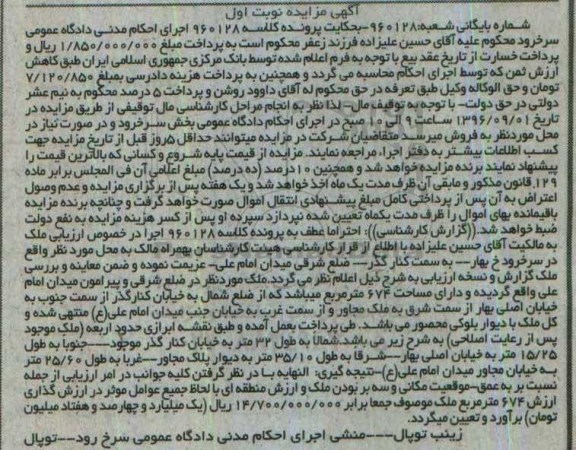 آگهی مزایده نوبت اول
شماره بایگانی شعبه:۹۶۰۱۲۸-بحکایت پرونده کلاسه ۹۶۰۱۲۸ اجرای احکام مدنی دادگاه عمومی
سرخرود محکوم علیه آقای حسین علیزاده فرزند زعفر محکوم است به پرداخت مبلغ ۱/۸۵۰/۰۰۰/۰۰۰ ریال و
پرداخت خسارت از تاریخ عقد بیع با توجه به فرم اعلام شده توسط بانک مرکزی جمهوری اسلامی ایران طبق کاهش
ارزش ثمن که توسط اجرای احکام محاسبه می گردد و همچنین به پرداخت هزینه دادرسی بمبلغ ۷/۱۲۰/۸۵۰
تومان و حق الوکاله وکیل طبق تعرفه در حق محکوم له آقای داوود روشن و پرداخت ۵ درصد محکوم به نیم عشر
دولتی در حق دولت- با توجه به توقیف مال- لذا نظر به انجام مراحل کارشناسی مال توقیفی از طریق مزایده در
تاریخ ۱۳۹۶/۰۹/۰۱ ساعت ۹ الی ۱۰ صبح در اجرای احکام دادگاه عمومی بخش سرخرود و در صورت نیاز در
محل موردنظر به فروش میرسد متقاضیان شرکت در مزایده میتوانند حداقل ۵روز قبل از تاریخ مزایده جهت
کسب اطلاعات بیشتر به دفتر اجرا، مراجعه نمایند. مزایده از قیمت پایه شروع و کسانی که بالاترین قیمت را
پیشنهاد نمایند برنده مزایده خواهد شد و همچنین ۱۰درصد (ده درصد) مبلغ اعلامی آن فی المجلس برابر ماده
۱۲۹ قانون مذکور و مابقی آن ظرف مدت یک ماه اخذ خواهد شد و یک هفته پس از برگزاری مزایده و عدم وصول
اعتراض به آن پس از پرداختی کامل مبلغ پیشنهادی انتقال اموال صورت خواهد گرفت و چنانچه برنده مزایده
باقیمانده بهای اموال را ظرف مدت یکماه تعیین شده نپردازد سپرده او پس از کسر هزینه مزایده به نفع دولت
ضبط خواهد شد.((گزارش کارشناسی)): احتراما عطف به پرونده کلاسه ۹۶۰۱۲۸ اجرا در خصوص ارزیابی ملک
به مالکیت آقای حسین علیزاده با اطلاع از قرار کارشناسی هیئت کارشناسان بهمراه مالک به محل مورد نظر واقع
در سرخرود خ بهار-- به سمت کنار گذر-- ضلع شرقی میدان امام علی- عزیمت نموده و ضمن معاینه و بررسی
ملک گزارش و نسخه ارزیابی به شرح ذیل اعلام نظر می گردد.ملک موردنظر در ضلع شرقی و پیرامون میدان امام
علی واقع گردیده و دارای مساحت ۶۷۴ مترمربع میباشد که از ضلع شمال به خیابان کنارگذر از سمت جنوب به
خیابان اصلی بهار از سمت شرق به ملک مجاور و از سمت غرب به خیابان جنب میدان امام علی(ع) منتهی شده و
کل ملک با دیوار بلوکی محصور می باشد. طی پرداخت بعمل آمده و طبق نقشه ابرازی حدود اربعه (ملک موجود
پس از رعایت اصلاحی) به شرح زیر می باشد.شمالا به طول ۳۲ متر به خیابان کنار گذر موجود---جنوبا به طول
۱۵/۲۵ متر به خیابان اصلی بهار--شرقا به طول ۳۵/۱۰ متر به دیوار پلاک مجاور--غربا به طول ۲۵/۶۰ متر
به خیابان مجاور میدان امام علی(ع)-نتیجه گیری: النهایه با در نظر گرفتن کلیه جوانب در امر ارزیابی از جمله
نسبت بر به عمق-موقعیت مکانی و سه بر بودن ملک و ارزش منطقه ای با لحاظ جمیع عوامل موثر در ارزش گذاری
ارزش ۶۷۴ مترمربع ملک موصوف جمعا برابر ۱۴/۷۰۰/۰۰۰/۰۰۰ ریال (یک میلیارد و چهارصد و هفتاد میلیون
تومان) برآورد و تعیین میگردد.
زینب توپال---منشی اجرای احکام مدنی دادگاه عمومی سرخ رود--توپال